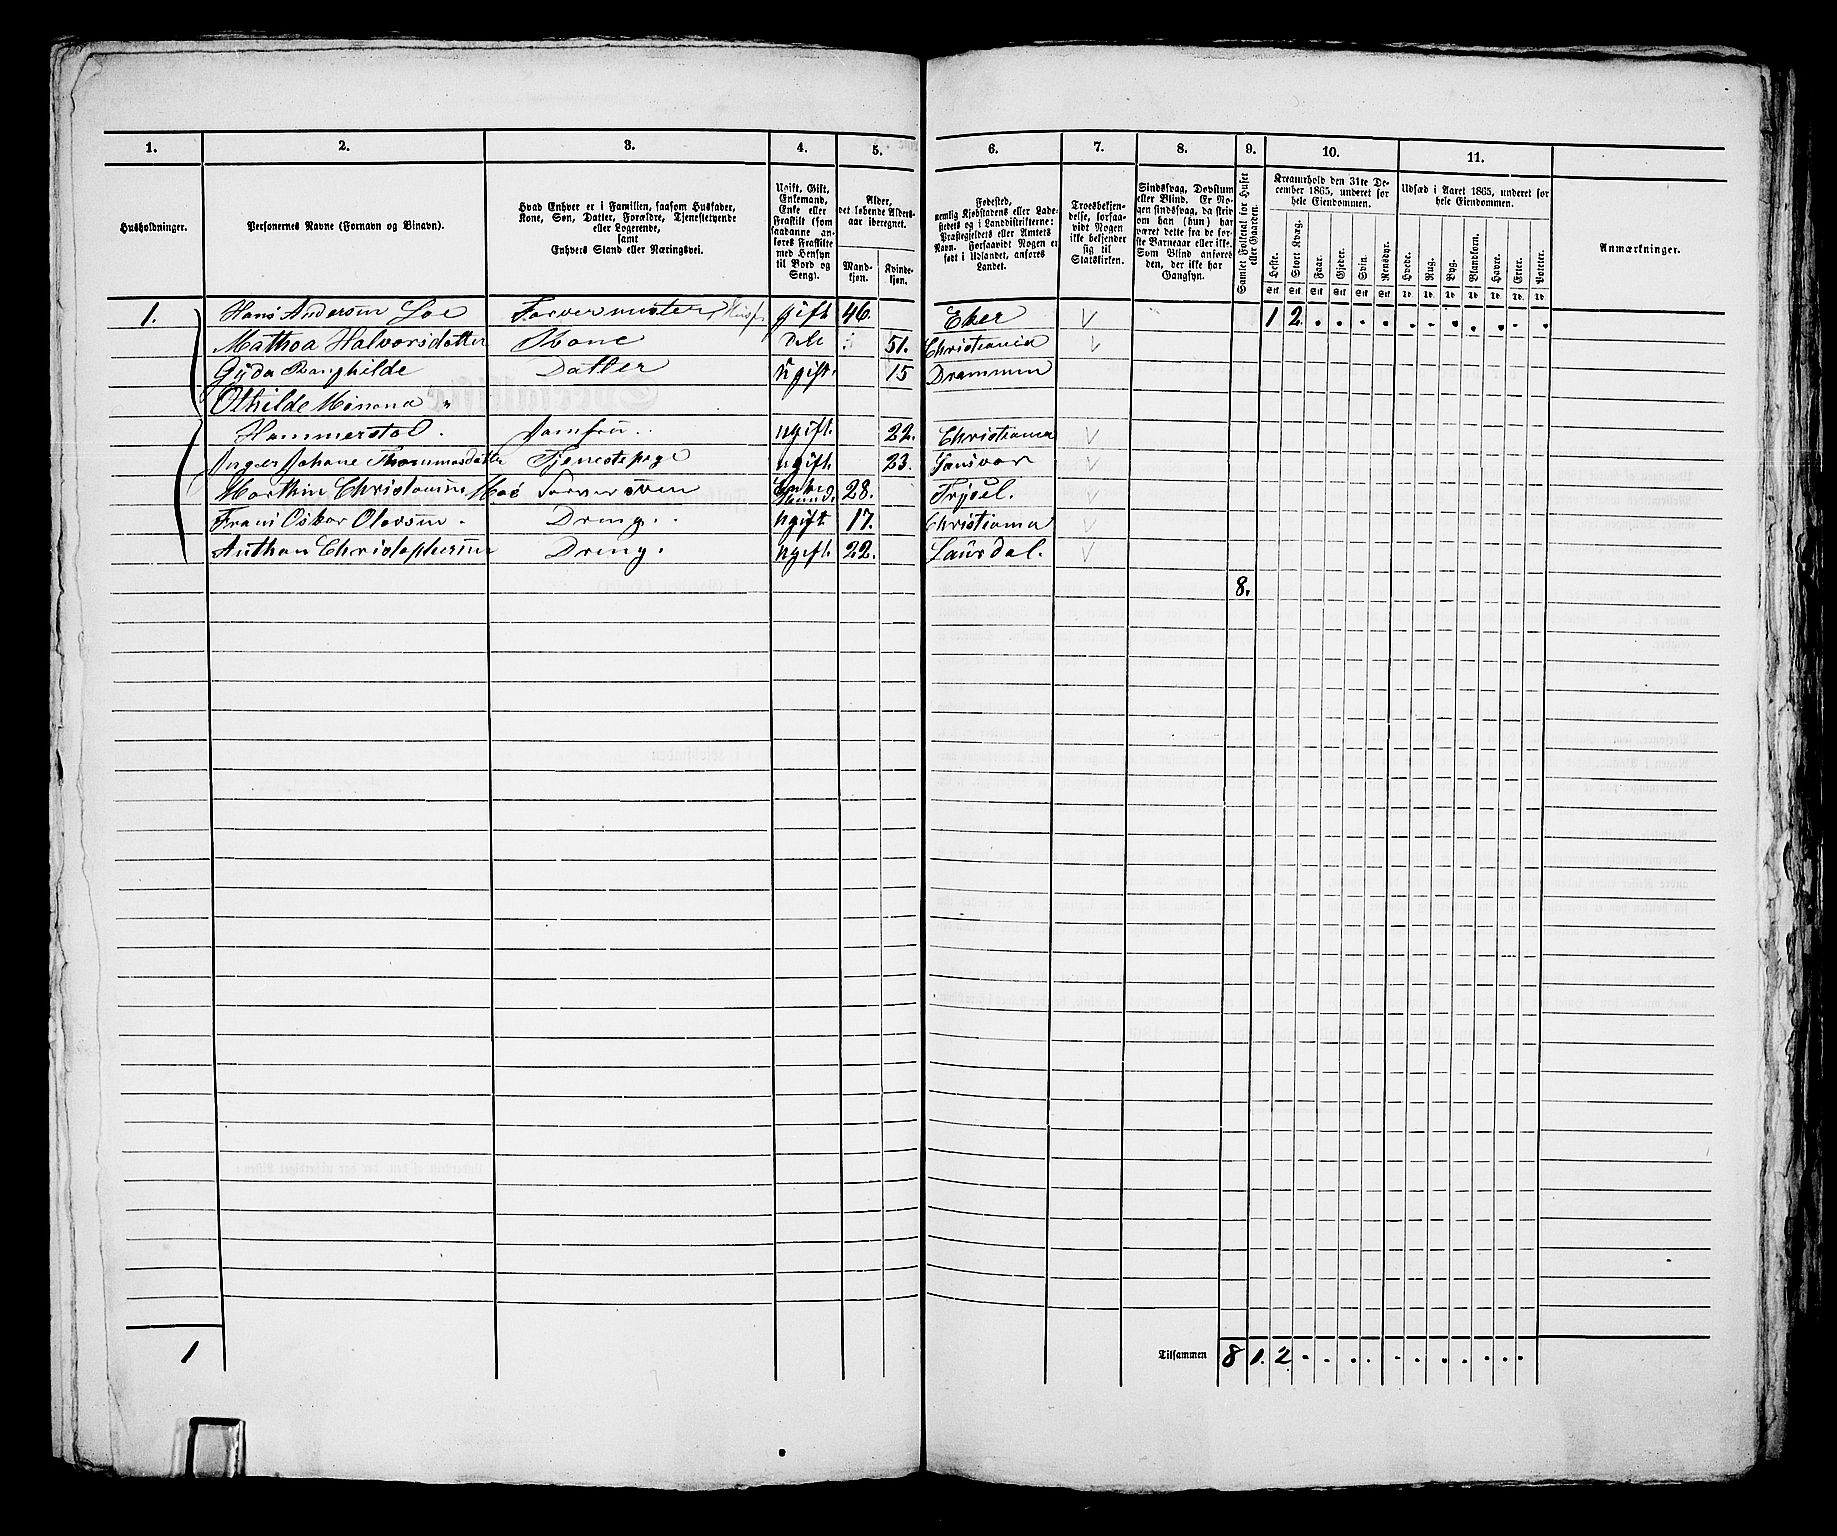 1. 2. 3. 4. 5. 6. 7. 8. 9. 10. 11.
Husholdninger.
Personernes Navne (Fornavn og Binavn).
Hvad Enhver er i Familien, saasom Husfader,
Kone, Søn, Datter, Forældre, Tjenestetyende
eller Logerende,
samt
Enhvers Stand eller Næringsvei.
Ugift, Gift,
Enkemand,
Enke eller
Fraskilt (som
saadanne an-
føres Fraskilte
med Hensyn
til Bord og
Seng).
Alder,
det løbende Alders-
aar iberegnet.
Mand-
kjøn.
Kvinde-
kjøn.
Fødested,
nemlig Kjøbstadens eller Lade-
stedets og i Landdistrikterne:
Præstegjeldets eller Amtets
Navn. Forsaavidt Nogen er
født i Udlandet, anføres
Landet.
Troesbekjen-
delse, forsaa-
vidt Nogen
ikke bekjender
sig til
Statskirken.
Sindssvag, Døvstum
eller Blind. Er No-
gen sindssvag, da skriv
om han (hun) har
været dette fra de før-
ste Barneaar eller ikke.
Som Blind anføres
den, der ikke har
Gangsyn.
Samlet Folketal for Huset
eller Gaarden.
Kreaturhold den 31te De-
cember 1865, underet for
hele Eiendommen.
Heste. Stort Kvæg. Faar. Gjeder. Svin. Rensdyr.
Udsæd i Aaret 1865, underet for
hele Eiendommen.
Hvede. Rug. Byg. Blandkorn. Havre. Erter. Poteter.
Stk Stk Stk Stk Stk Stk Td. Td. Td. Td. Td. Td. Td.
Anmærkninger.
1. Hans Andersen Loe Farvermester, Husf. gift 46. Eker V 1 2 . . . . . . . . . . .
Mathea Halvorsdatter Kone Dito 51. Christiania V
Gyda Ranghilde Datter Ugift. 15 Drammen
Othilde Minona "
Hammerstad. Jomfru .. ugift. 22. Christiania V
Inger Johane Thommasdatter Tjenestepige ugift. 23. V
Marthin Christensen Moe Farversven Enkemand. 28. Trysil. V
Frans Oskar Olavsen . Dreng. . ugift. 17. Christiania V
Anthon Christophersen Dreng. ugift. 22. Laurdal. V
8.
1
Tilsammen 8 1. 2 . . . . . . . . . . .